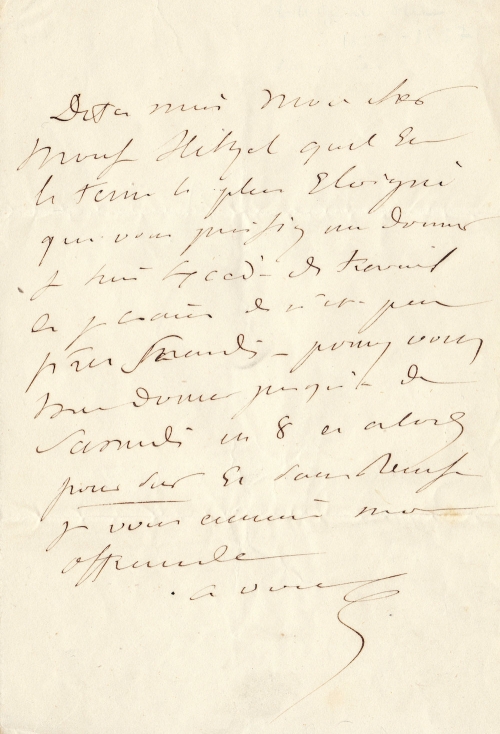 Dites moi Mon cher
Mons Hetzel quel est
le terme le plus Eloigné
que vous puissiez me donner
je suis excédé de travail
et je crains de n'être pas
prêt Samedi – pouvez vous
me donner jusqu'à de
Samedi en 8 et alors
pour sur Et sans Remise
je vous enverrai mon
offrande
a vous